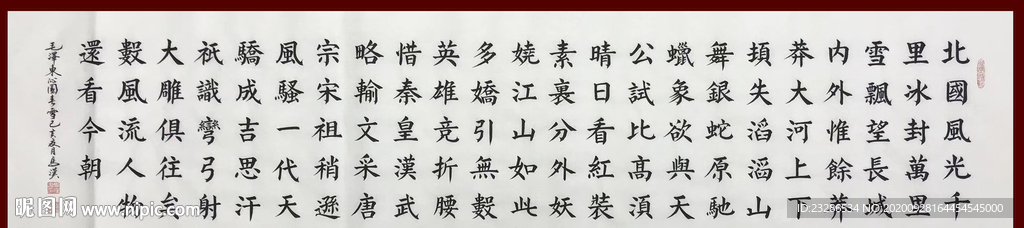 北國風光千
里冰封萬里
雪飄望長城
内外惟餘莽
莽大河上下
頓失滔滔山
舞銀蛇原馳
蠟象欲與天
公試比髙須
晴日看紅裝
素裹分外妖
嬈江山如此
多嬌引無數
英雄竞折腰
惜秦皇漢武
略輸文采唐
宗宋祖稍遜
風騷一代天
驕成吉思汗
祇識彎弓射
大雕俱往矣
數風流人物
還看今朝
毛澤東沁園春雪己亥夏月
昵图网 www.nipic.com
ID:23256534 NO:20200928164454545000